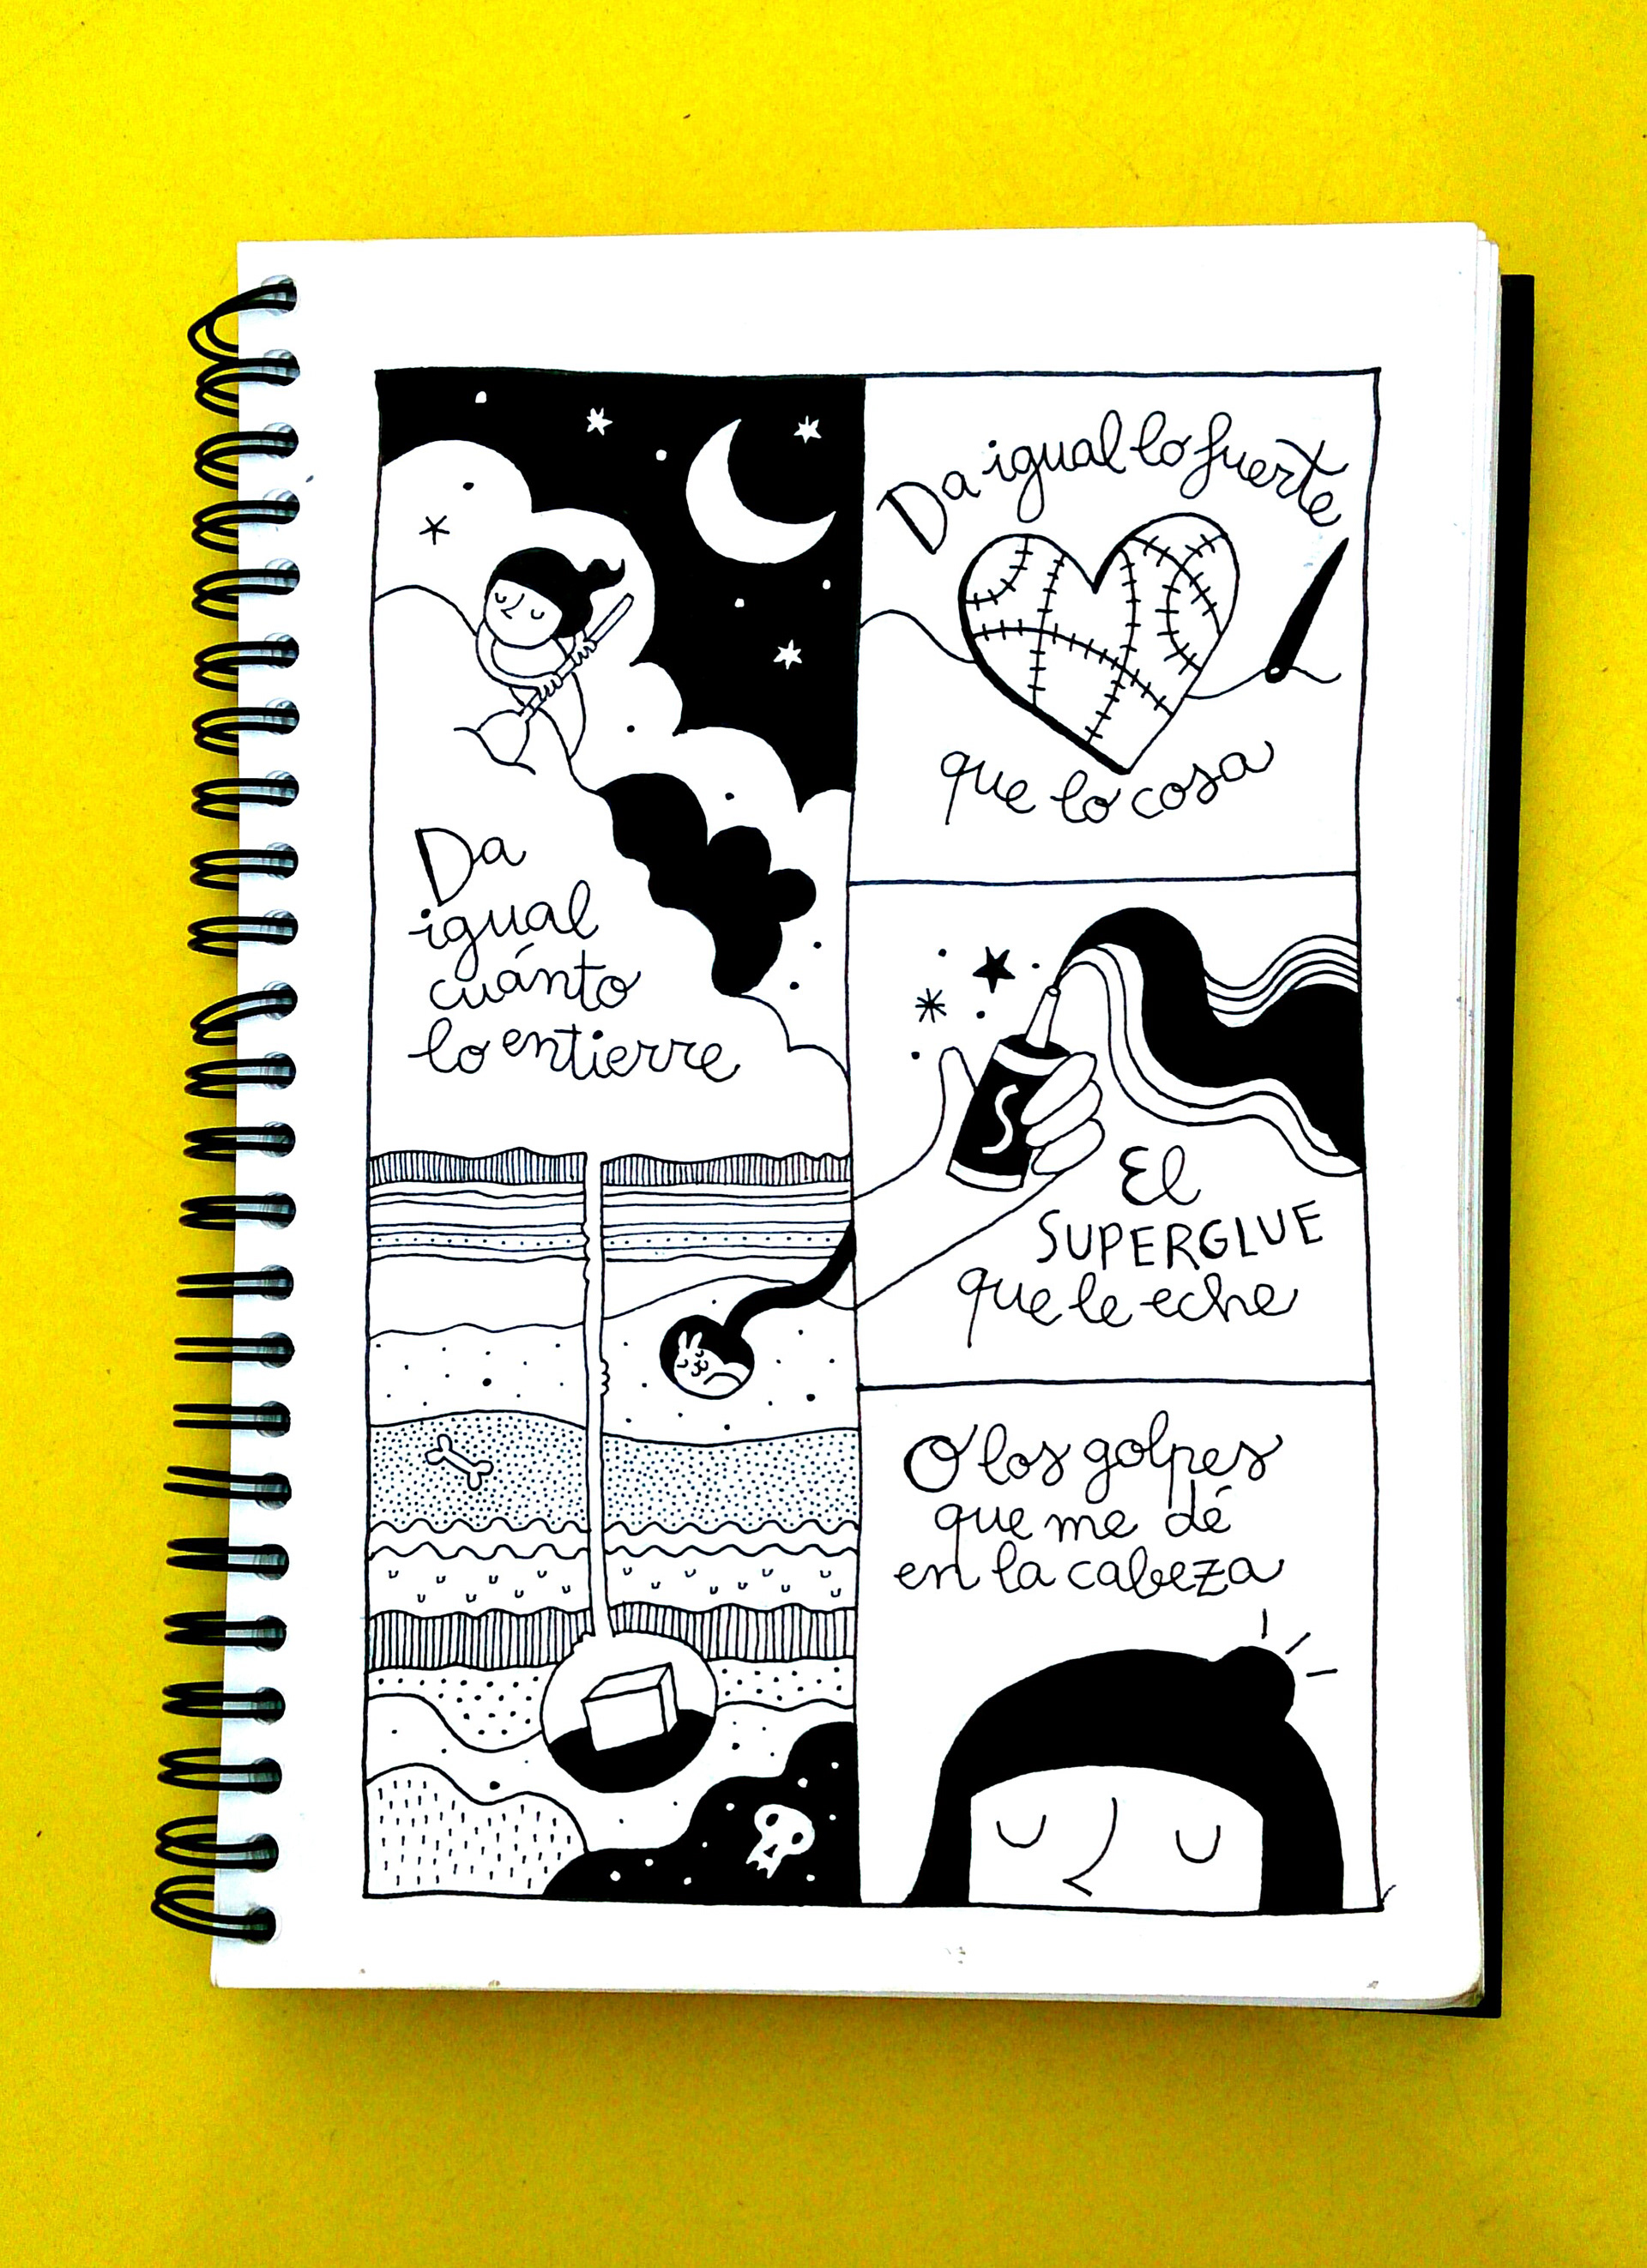 Da
igual
cuánto
lo entierre
Da igual lo fuerte
que lo cosa
S
El
SUPERGLUE
que le eche
O los golpes
que me dé
en la cabeza